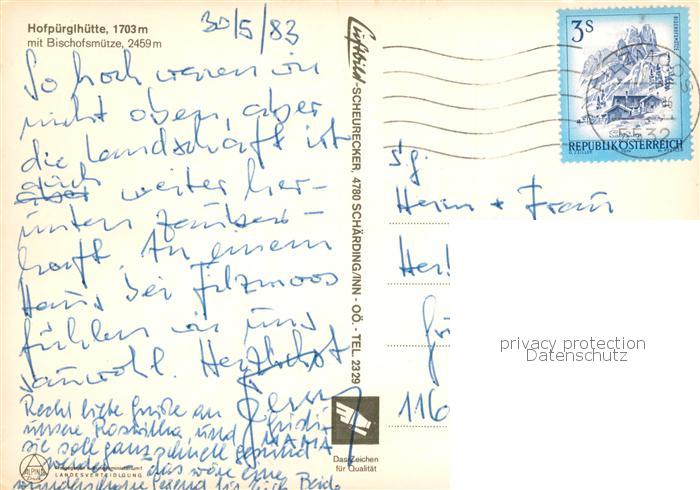 Hofpürglhütte, 1703 m
mit Bischofsmütze, 2459 m
30/5/83
So hoch waren wir
nicht oben, aber
die Landschaft ist
auch weiter hier-
unten zauber-
haft. In einem
Haus bei Filzmoos
fühlen wir uns
sauwohl. Herzlichst
Recht liebe Grüße an
unsere Roswitha, und
MAMA
sie soll ganz schnell gesund
werden - das wäre eine
wunderschöne
für Beide
ALPINE
LANDESVERTEIDIGUNG
Luftbild-SCHEURECKER, 4780 SCHÄRDING/INN - OÖ. - TEL. 2329
Das Zeichen
für Qualität
3 S
BISCHOFSMÜTZE
REPUBLIK ÖSTERREICH
5532
S.g.
Herrn + Frau
Her
116
privacy protection
Datenschutz